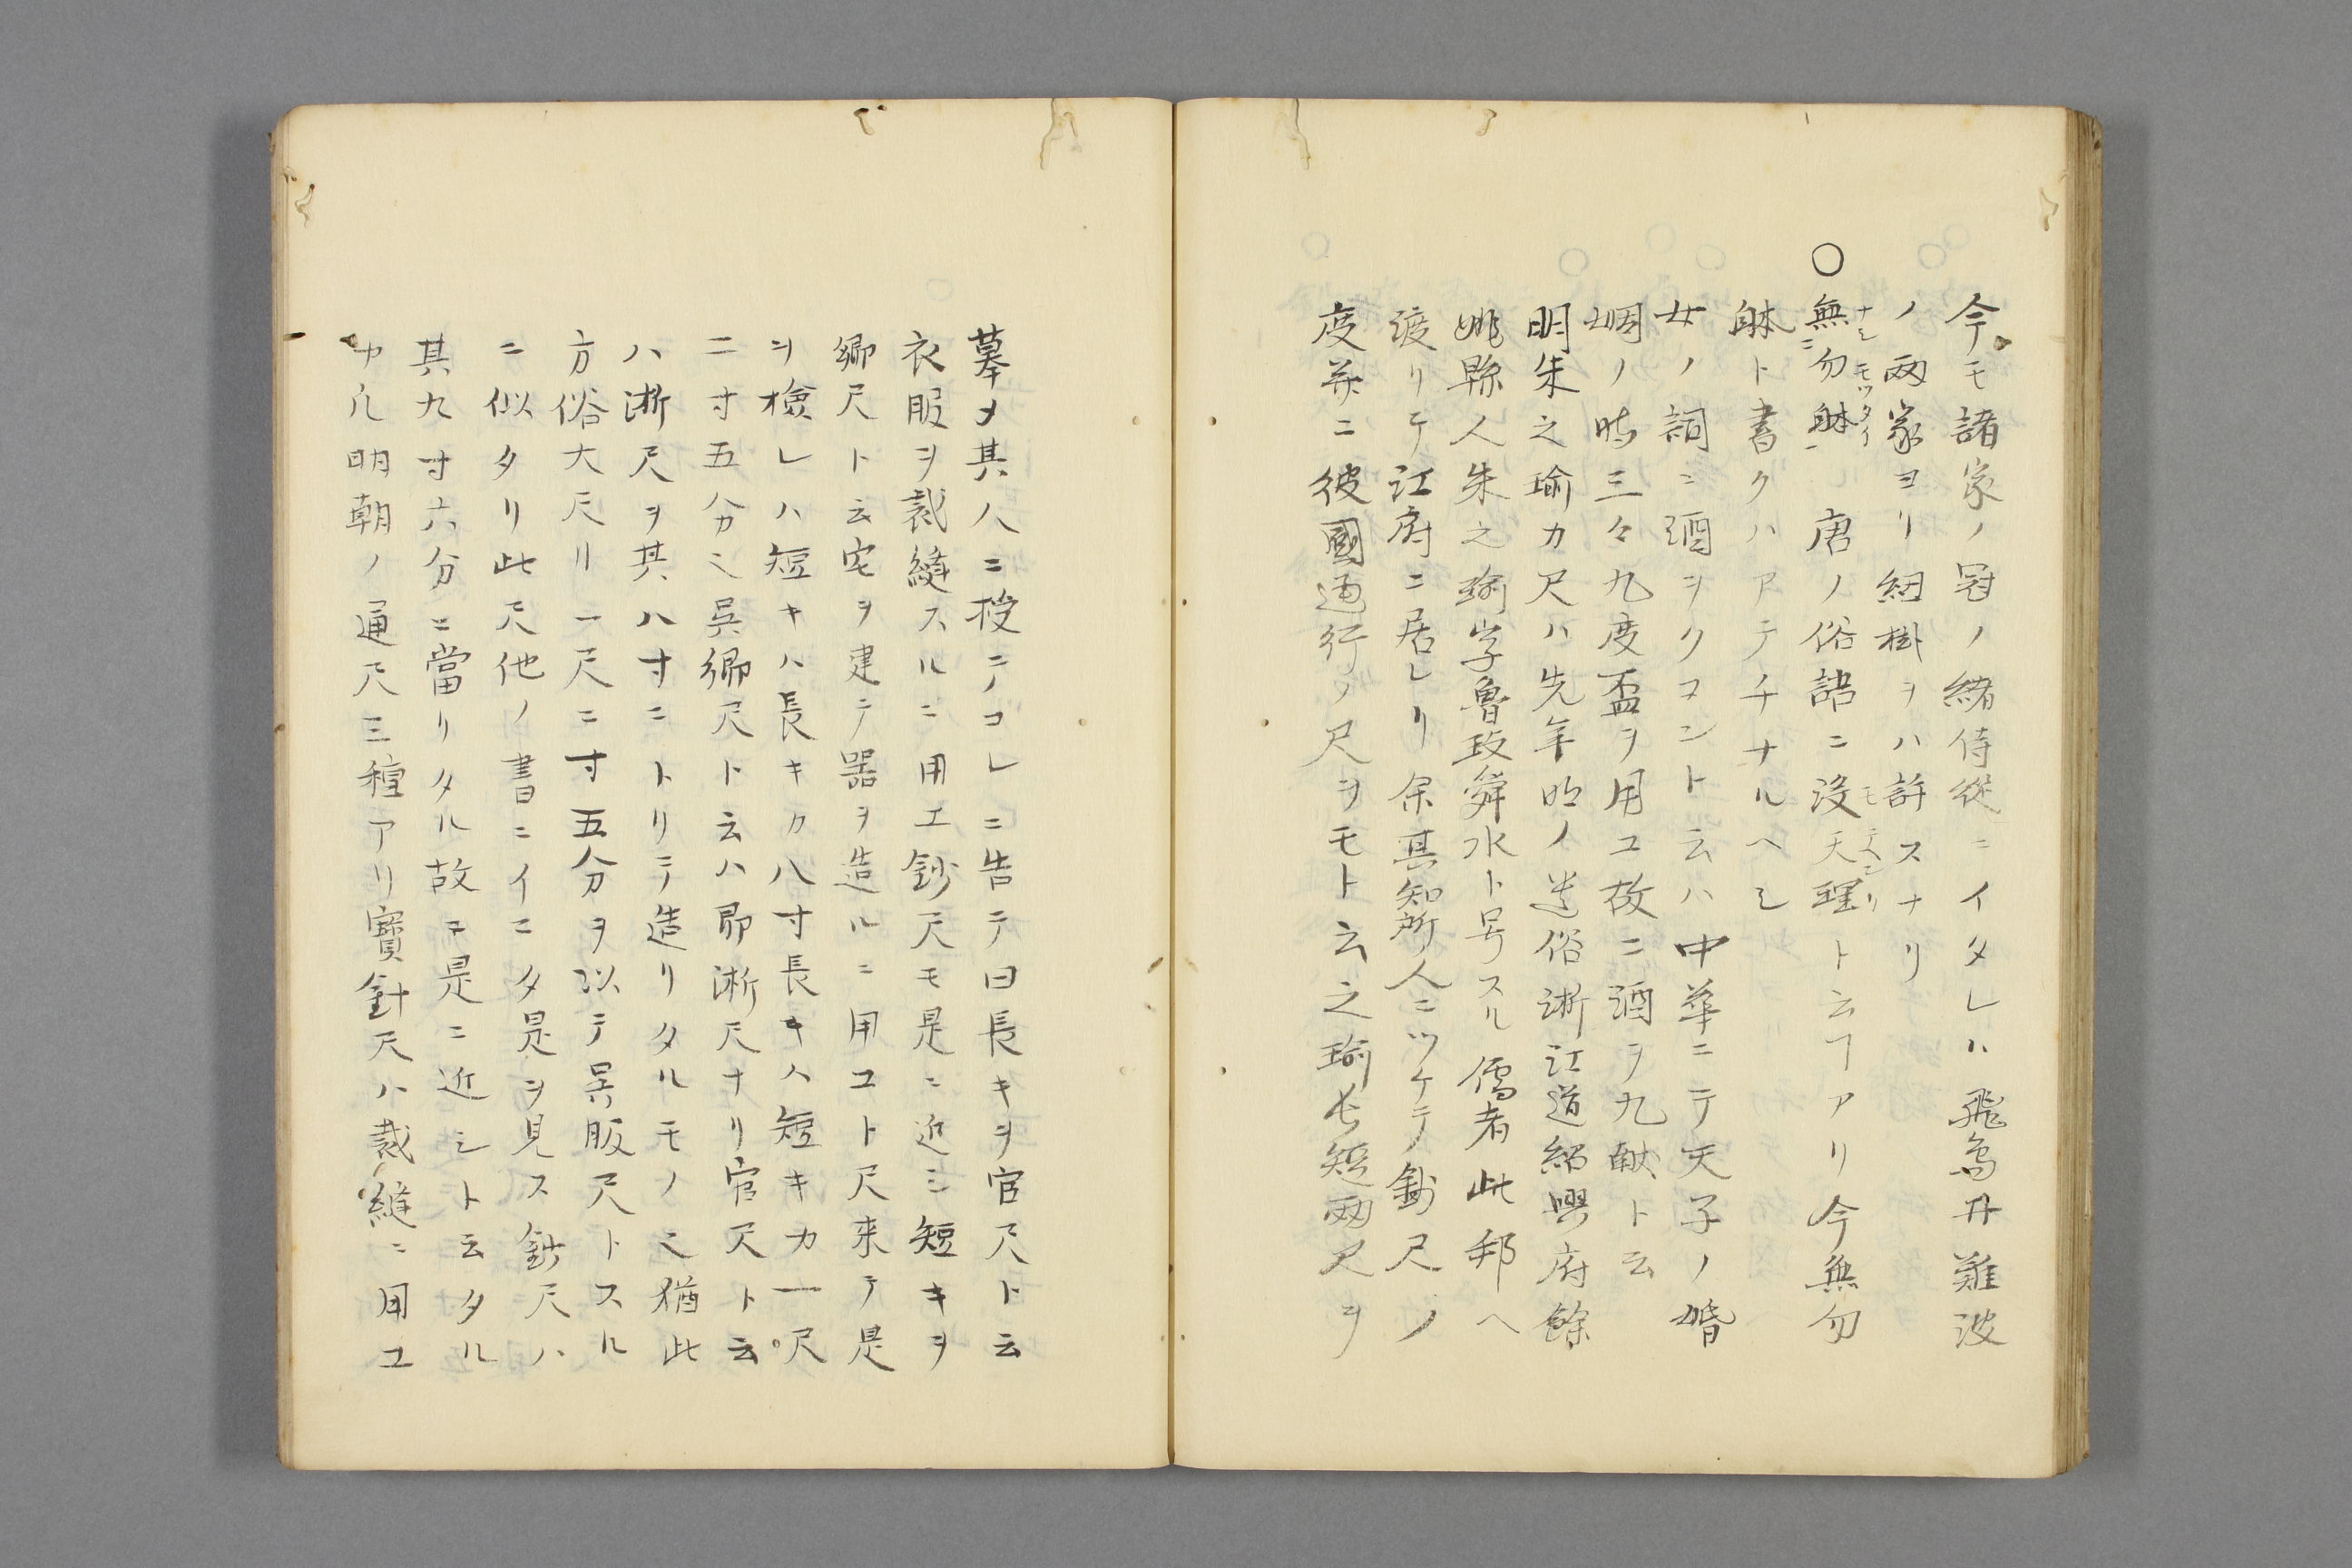 今モ諸家ノ冠ノ緒侍従ニイタレハ飛鳥井難波
ノ両家ヨリ紐掛ヲハ許スナリ
○無勿躰 唐ノ俗語ニ没天理ト云フアリ今無勿
ナシモツタイ
モテンリ
躰ト書クハアテチナルヘシ
女ノ詞ニ酒ヲクコント云ハ中華ニテ天子ノ婚
姻ノ時三々九度盃ヲ用ユ故ニ酒ヲ九献ト云
明朱之瑜カ尺ハ先年明ノ遺俗淅江道紹興府餘
姚縣人朱之瑜字魯玙舜水ト号スル儒者此邦ヘ
渡リテ江府ニ居レリ余其知所ノ人ニツケテ鈔尺ノ
度并ニ彼國通行ノ尺ヲモト云之瑜長短両尺ヲ
摹メ其人ニ授ニノコレニ告テ曰長キヲ官尺ト云
衣服ヲ裁縫スルニ用エ鈔尺モ是ニ近シ短キヲ
郷尺ト云宅ヲ建テ器ヲ造ルニ用ユト尺来テ是
ヲ檢レハ短キハ長キカ八寸長キハ短キカ一尺
二寸五分也呉郷尺ト云ハ即淅尺ナリ官尺ト云
ハ淅尺ヲ其八寸ニトリテ造リタルモノ也猶此
方俗大尺リ一尺ニ寸五分ヲ以テ呉服尺トスル
ニ似タリ此尺他ノ書ニイニタ是ヲ見ス鈔尺ハ
其九寸六分ニ當リタル故ニ是ニ近シト云タル
也凡明朝ノ通尺三種アリ寶鈔尺ハ裁縫ニ用ユ